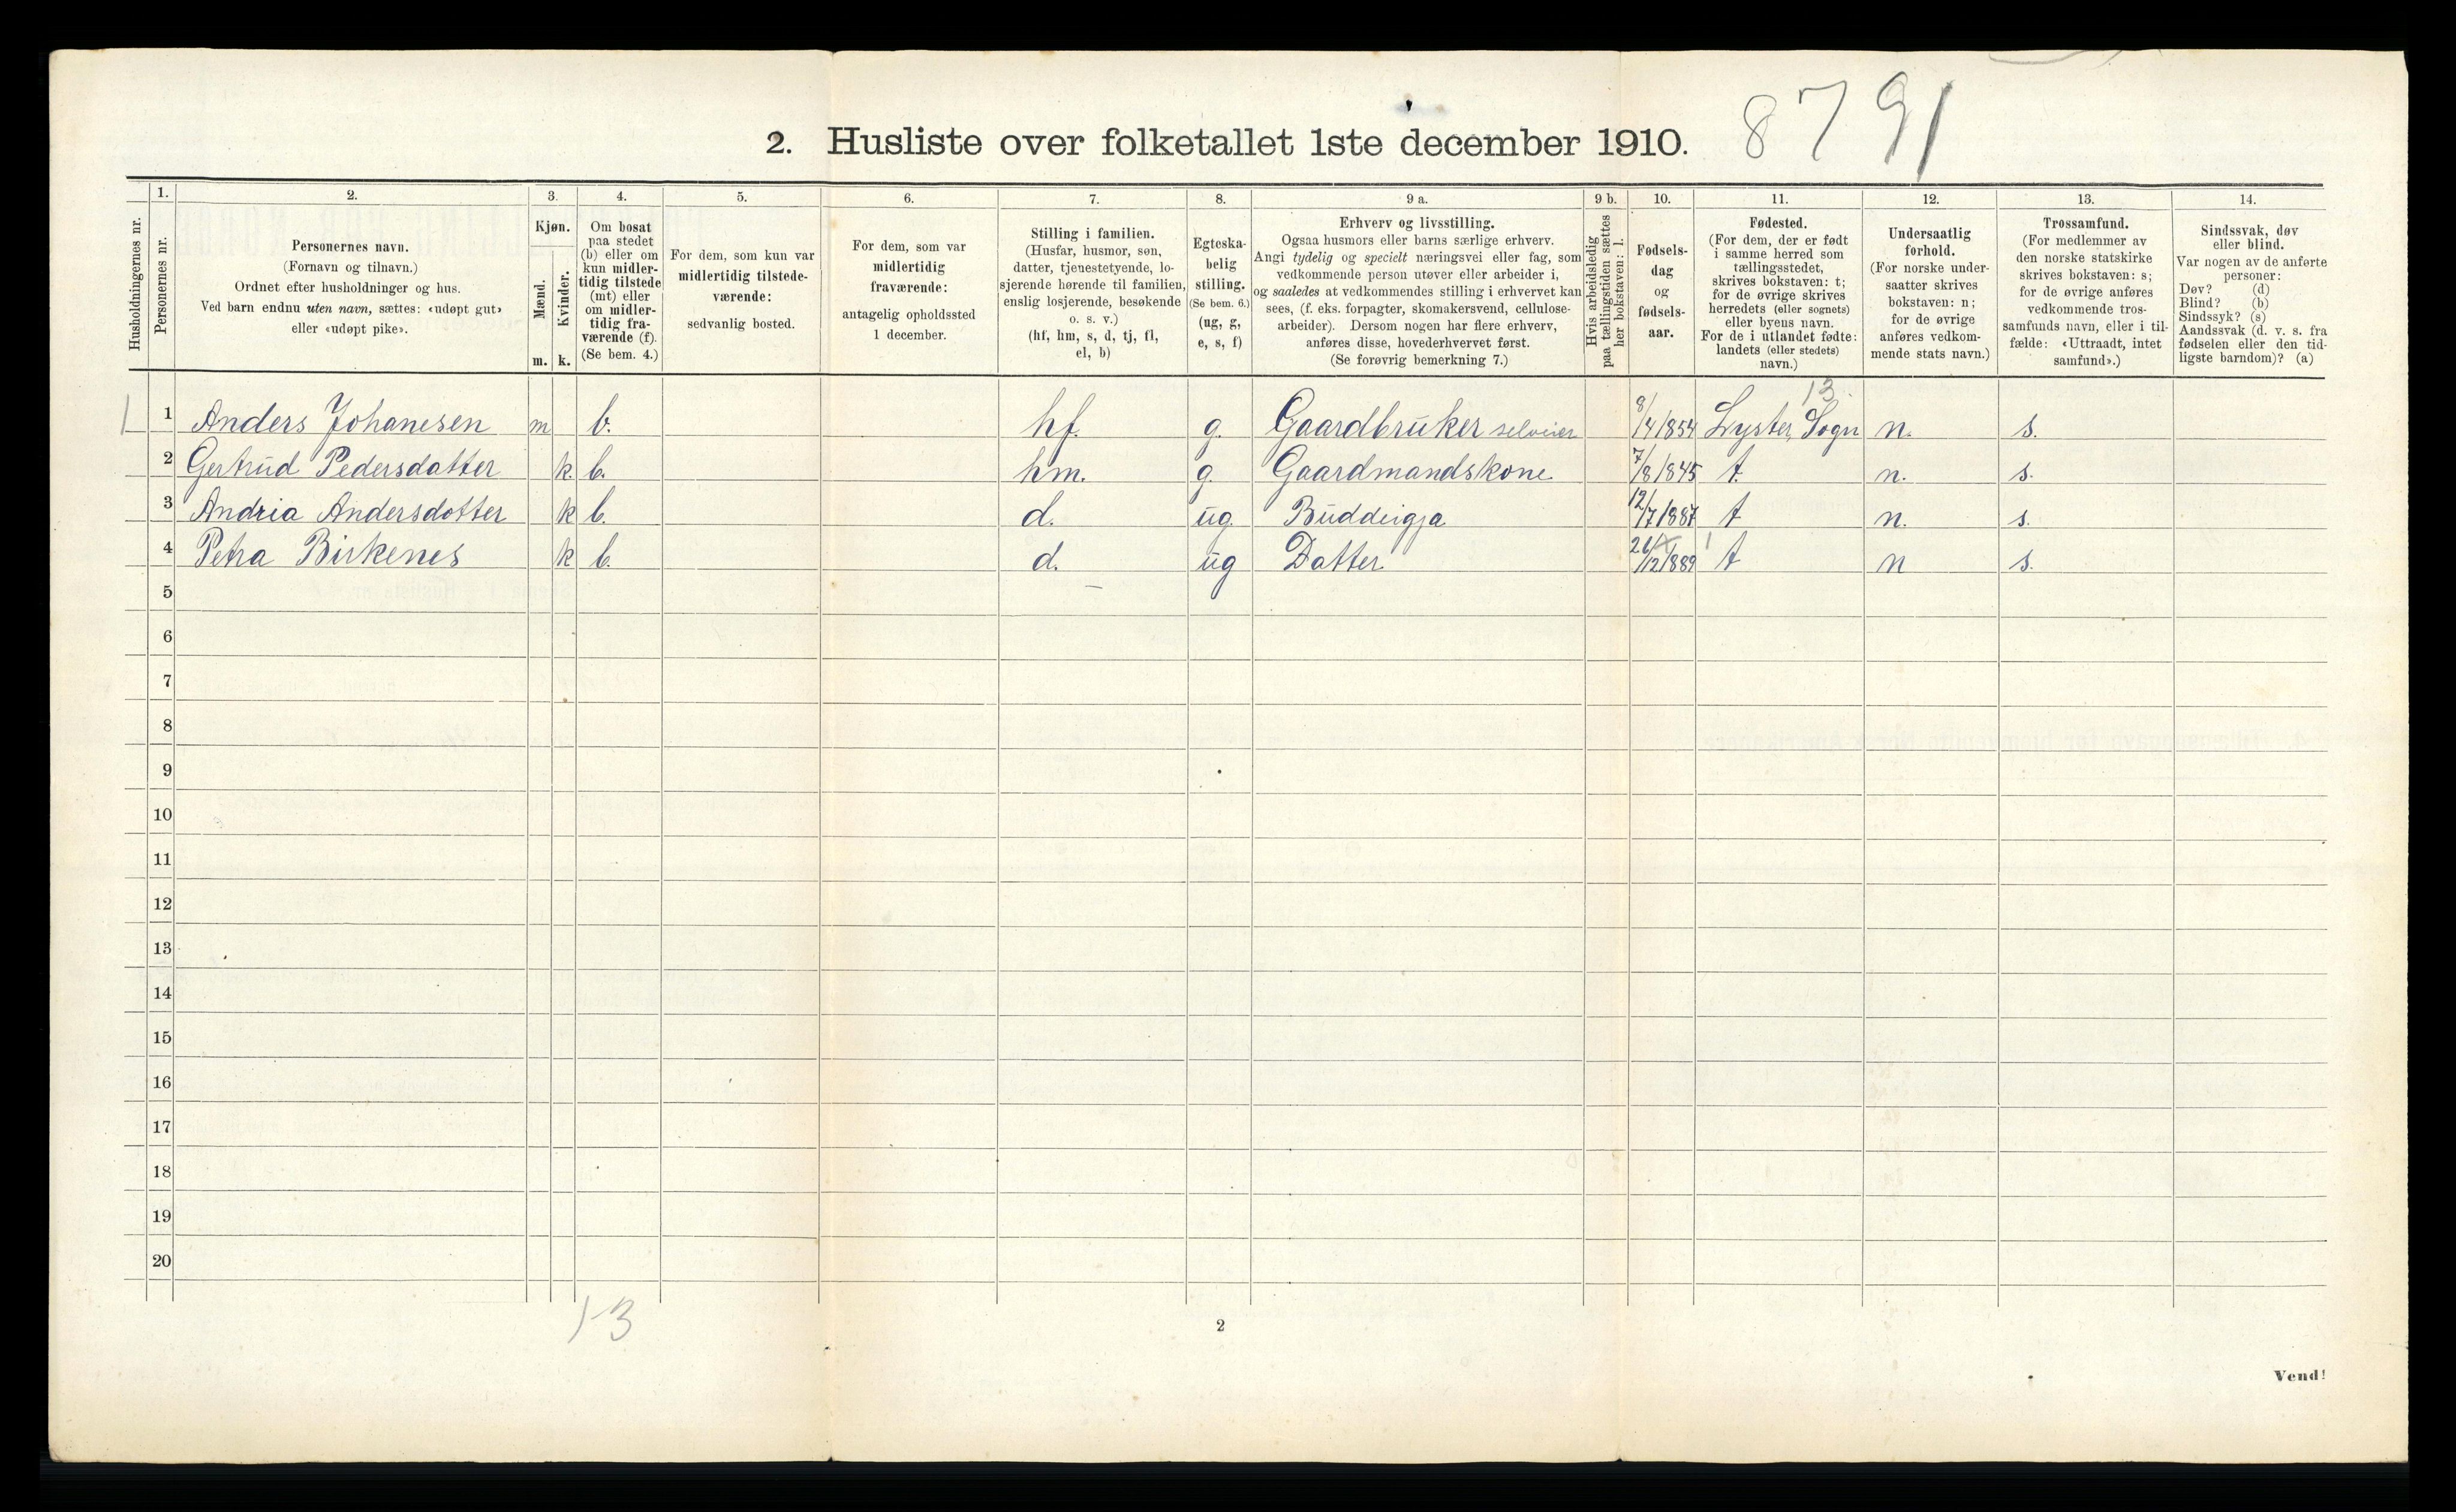 8791
2. Husliste over folketallet 1ste december 1910.
Husholdningernes nr.
1.
Personernes nr.
2.
Personernes navn.
(Fornavn og tilnavn.)
Ordnet efter husholdninger og hus.
Ved barn endnu uten navn, sættes: «udøpt gut»
eller «udøpt pike».
3.
Kjøn.
Mænd.
Kvinder.
m. k.
4.
Om bosat
paa stedet
(b) eller om
kun midler-
tidig tilstede
(mt) eller
om midler-
tidig fra-
værende (f).
(Se bem. 4.)
5.
For dem, som kun var
midlertidig tilstede-
værende:
sedvanlig bosted.
6.
For dem, som var
midlertidig
fraværende:
antagelig opholdssted
1 december.
7.
Stilling i familien.
(Husfar, husmor, søn,
datter, tjenestetyende, lo-
sjerende hørende til familien,
enslig losjerende, besøkende
o. s. v.)
(hf, hm, s, d, tj, fl,
el, b)
8.
Egteska-
belig
stilling.
(Se bem. 6.)
(ug, g,
e, s, f)
9 a.
Erhverv og livsstilling.
Ogsaa husmors eller barns særlige erhverv.
Angi tydelig og specielt næringsvei eller fag, som
vedkommende person utøver eller arbeider i,
og saaledes at vedkommendes stilling i erhvervet kan
sees, (f. eks. forpagter, skomakersvend, cellulose-
arbeider). Dersom nogen har flere erhverv,
anføres disse, hovederhvervet først.
(Se forøvrig bemerkning 7.)
9 b.
Hvis arbeidsledig
paa tællingstiden sættes
her bokstaven: l.
10.
Fødsels-
dag
og
fødsels-
aar.
11.
Fødested.
(For dem, der er født
i samme herred som
tællingsstedet,
skrives bokstaven: t;
for de øvrige skrives
herredets (eller sognets)
eller byens navn.
For de i utlandet fødte:
landets (eller stedets)
navn.)
12.
Undersaatlig
forhold.
(For norske under-
saatter skrives
bokstaven: n;
for de øvrige
anføres vedkom-
mende stats navn.)
13.
Trossamfund.
(For medlemmer av
den norske statskirke
skrives bokstaven: s;
for de øvrige anføres
vedkommende tros-
samfunds navn, eller i til-
fælde: «Uttraadt, intet
samfund».)
14.
Sindssvak, døv
eller blind.
Var nogen av de anførte
personer:
Døv? (d)
Blind? (b)
Sindssyk? (s)
Aandssvak (d. v. s. fra
fødselen eller den tid-
ligste barndom)? (a)
13.
1 1 Anders Johanesen m b. hf. g. Gaardbruker selveier 8/4 1854 Lyster, Sogn n. s.
2 Gertrud Pedersdatter k. b. hm. g. Gaardmandskone 7/8 1845 t. n. s.
3 Andria Andersdotter k b. d. ug. Buddeigja 12/7 1887 t n. s.
4 Petra Birkenes k b. d. ug Datter 26/12 1889 t n s.
5
6
7
8
9
10
11
12
13
14
15
16
17
18
19
20
13
2
Vend!